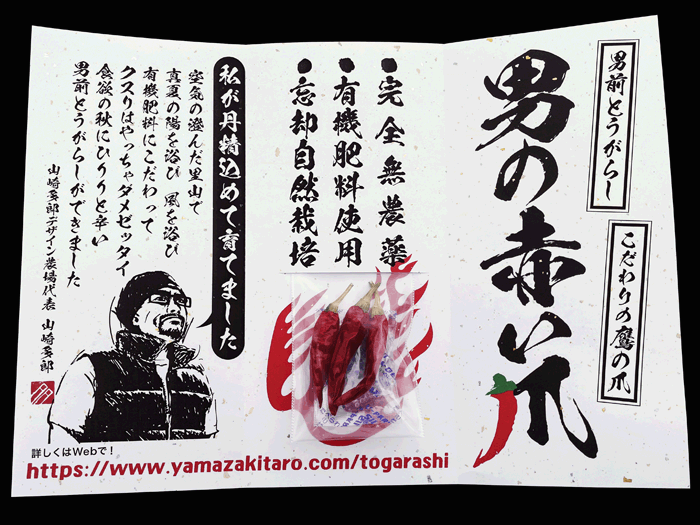 男前とうがらし
こだわりの鷹の爪
男の赤い爪
●完全無農薬
●有機肥料使用
●忘却自然栽培
私が丹精込めて育てました
空気の澄んだ里山で
真夏の陽を浴び 風を浴び
有機肥料にこだわって
クスリはやっちゃダメゼッタイ
食欲の秋にひりりと辛い
男前とうがらしができました
山崎多郎デザイン農場代表 山崎多郎
詳しくはWebで!
https://www.yamazakitaro.com/togarashi